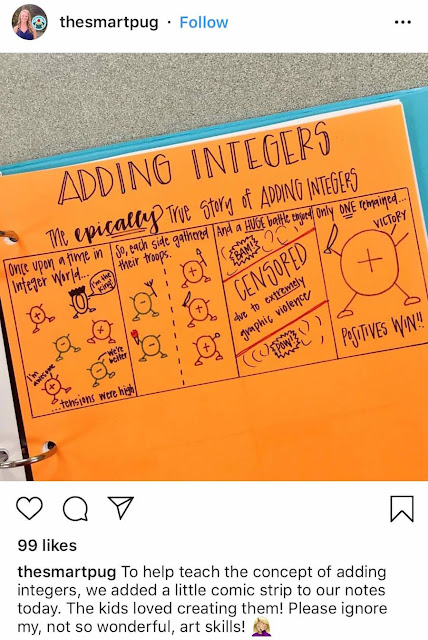 thesmartpug • Follow
ADDING INTEGERS
The epically True Story of ADDING INTEGERS
Once upon a time in
Integer World...
I'm the
king!
+
-
+
-
we're
better
I'm
awesome
+
...tensions were high
So, each side gathered
their troops.
-
-
+
+
+
And a HUGE battle ensued
BAM!
CENSORED
due to extremely
graphic violence
POW!
Only ONE remained...
VICTORY
+
POSITIVES WIN!!
99 likes
thesmartpug To help teach the concept of adding
integers, we added a little comic strip to our notes
today. The kids loved creating them! Please ignore
my, not so wonderful, art skills!